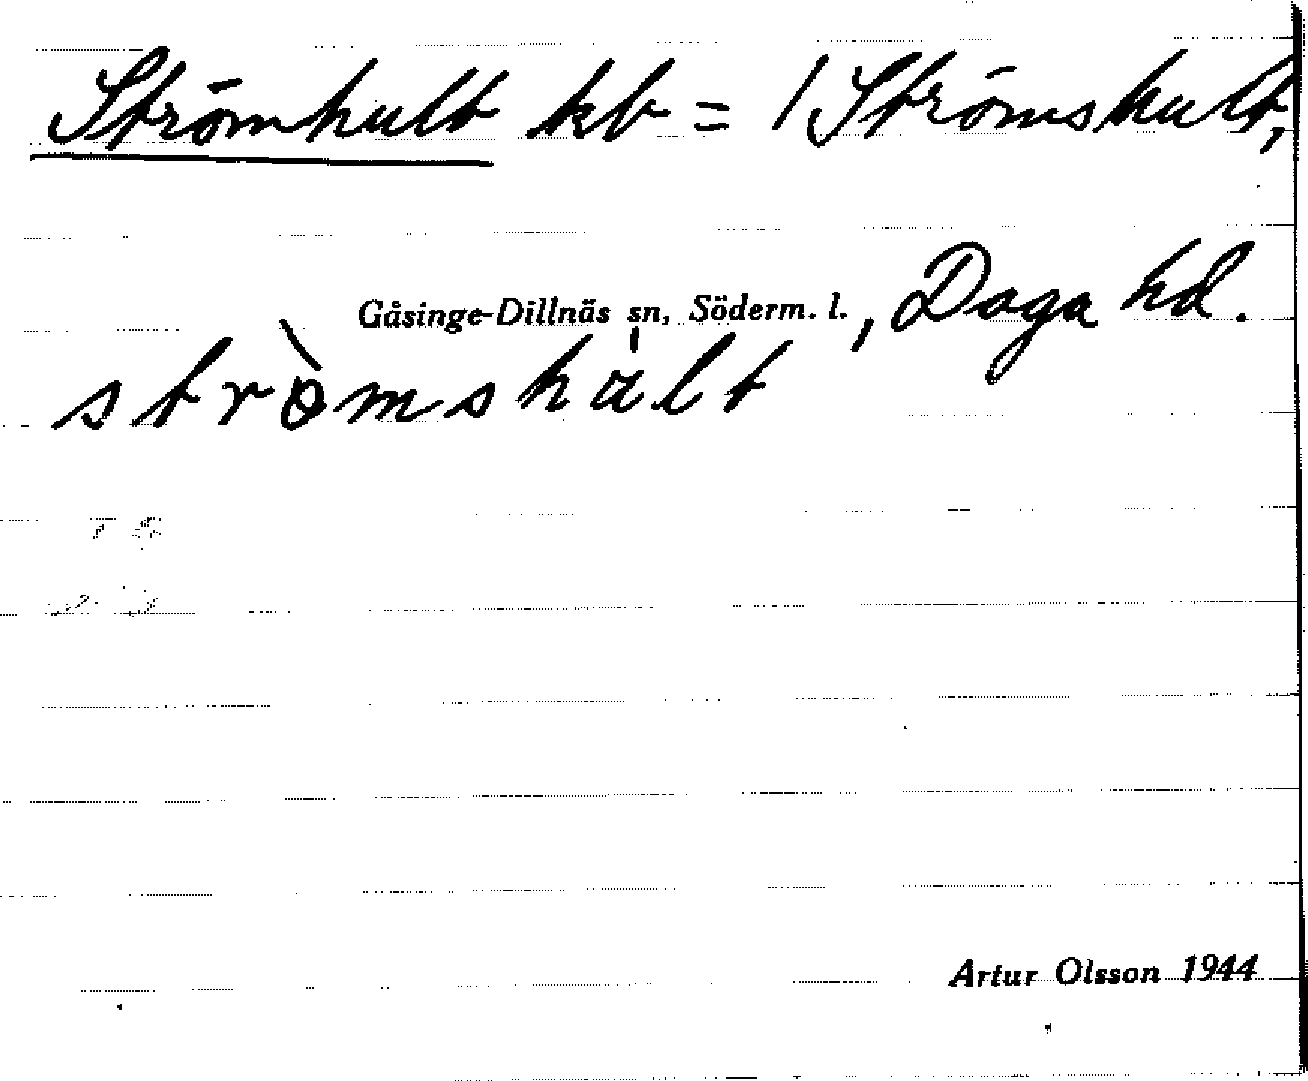 Strömhult kb = /Strömshult,
Gåsinge-Dillnäs sn, Söderm. l., Daga hd.
strömshalt
Artur Olsson 1944